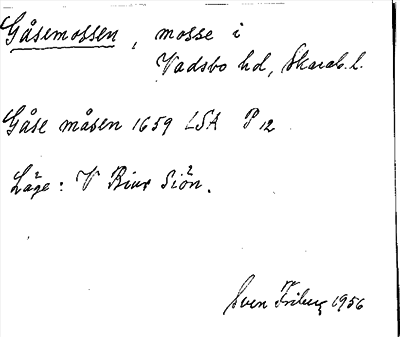 Gåsemossen, mosse i
Vadsbo hd, Skarab. l.
Gåse måsen 1659 LSA P 12
Läge: V Biur Siön.
Sven Friberg 1956